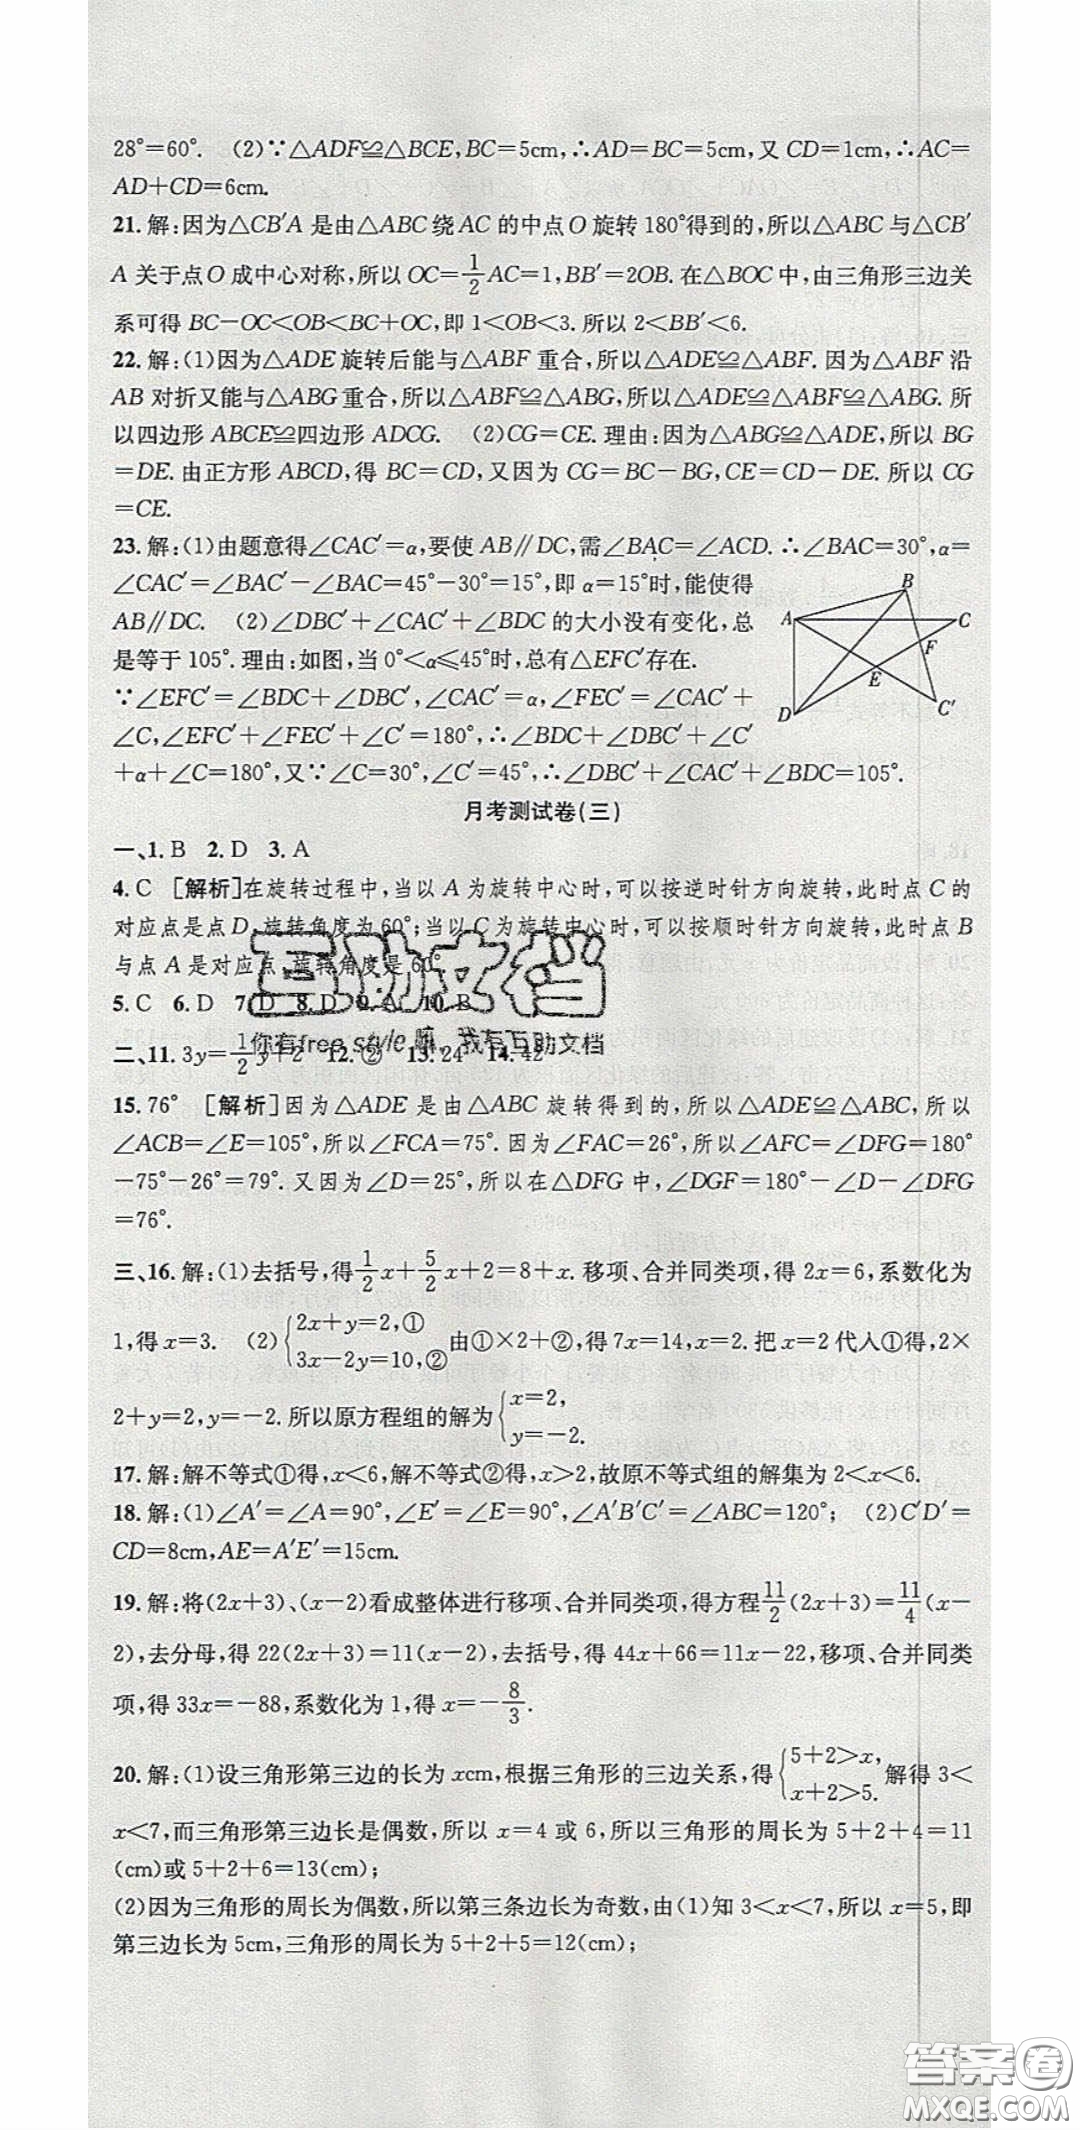 28°=60°. (2)∵△ADF≌△BCE,BC=5cm,∴AD=BC=5cm,又CD=1cm,∴AC=
AD+CD=6cm.
21.解:因为△CB′A是由△ABC绕AC的中点O旋转180°得到的,所以△ABC与△CB′
A关于点O成中心对称,所以OC=1/2AC=1,BB′=2OB.在△BOC中,由三角形三边关
系可得BC-OC<OB<BC+OC,即1<OB<3.所以2<BB′<6.
22.解:(1)因为△ADE旋转后能与△ABF重合,所以△ADE≌△ABF.因为△ABF沿
AB对折又能与△ABG重合,所以△ABF≌△ABG,所以△ADE≌△ABF≌△ABG.所
以四边形ABCE≌四边形ADCG. (2)CG=CE.理由:因为△ABG≌△ADE,所以BG
=DE.由正方形ABCD,得BC=CD,又因为CG=BC-BG,CE=CD-DE.所以CG
=CE.
23.解:(1)由题意得∠CAC′=α,要使AB∥DC,需∠BAC=∠ACD.∴∠BAC=30°,α=
∠CAC′=∠BAC′-∠BAC=45°-30°=15°,即α=15°时,能使得
AB∥DC. (2)∠DBC′+∠CAC′+∠BDC的大小没有变化,总
是等于105°.理由:如图,当0°<α≤45°时,总有△EFC′存在.
∵∠EFC′=∠BDC+∠DBC′,∠CAC′=α,∠FEC′=∠CAC′+
∠C,∠EFC′+∠FEC′+∠C′=180°,∴∠BDC+∠DBC′+∠C′
+α+∠C=180°,又∵∠C=30°,∠C′=45°,∴∠DBC′+∠CAC′+∠BDC=105°.
A B C F E D C′
月考测试卷(三)
一、1.B 2.D 3.A
4.C [解析]在旋转过程中,当以A为旋转中心时,可以按逆时针方向旋转,此时点C的
对应点是点D,旋转角度为60°;当以C为旋转中心时,可以按顺时针方向旋转,此时点B
与点A是对应点,旋转角度是60°.
5.C 6.D 7.D 8.D 9.A 10.B
互助文档
你有free style嘛,我有互助文档
二、11.3y=1/2y+2 12.② 13.24 14.42
15.76° [解析]因为△ADE是由△ABC旋转得到的,所以△ADE≌△ABC,所以
∠ACB=∠E=105°,所以∠FCA=75°.因为∠FAC=26°,所以∠AFC=∠DFG=180°
-75°-26°=79°.又因为∠D=25°,所以在△DFG中,∠DGF=180°-∠D-∠DFG
=76°.
三、16.解:(1)去括号,得1/2x+5/2x+2=8+x.移项、合并同类项,得2x=6,系数化为
1,得x=3. (2){2x+y=2,① 3x-2y=10,② 由①×2+②,得7x=14,x=2.把x=2代人①得,2×
2+y=2,y=-2.所以原方程组的解为{x=2, y=-2.
17.解:解不等式①得,x<6,解不等式②得,x>2,故原不等式组的解集为2<x<6.
18.解:(1)∠A′=∠A=90°,∠E′=∠E=90°,∠A′B′C′=∠ABC=120°; (2)C′D′=
CD=8cm,AE=A′E′=15cm.
19.解:将(2x+3)、(x-2)看成整体进行移项、合并同类项,得方程11/2(2x+3)=11/4(x-
2),去分母,得22(2x+3)=11(x-2),去括号,得44x+66=11x-22,移项、合并同类
项,得33x=-88,系数化为1,得x=-8/3.
20.解:(1)设三角形第三边的长为xcm,根据三角形的三边关系,得{5+2>x, x+2>5. 解得3<
x<7,而三角形第三边长是偶数,所以x=4或6,所以三角形的周长为5+2+4=11
(cm)或5+2+6=13(cm);
(2)因为三角形的周长为偶数,所以第三条边长为奇数,由(1)知3<x<7,所以x=5,即
第三边长为5cm,三角形的周长为5+2+5=12(cm);
答案圈
MXQE.COM